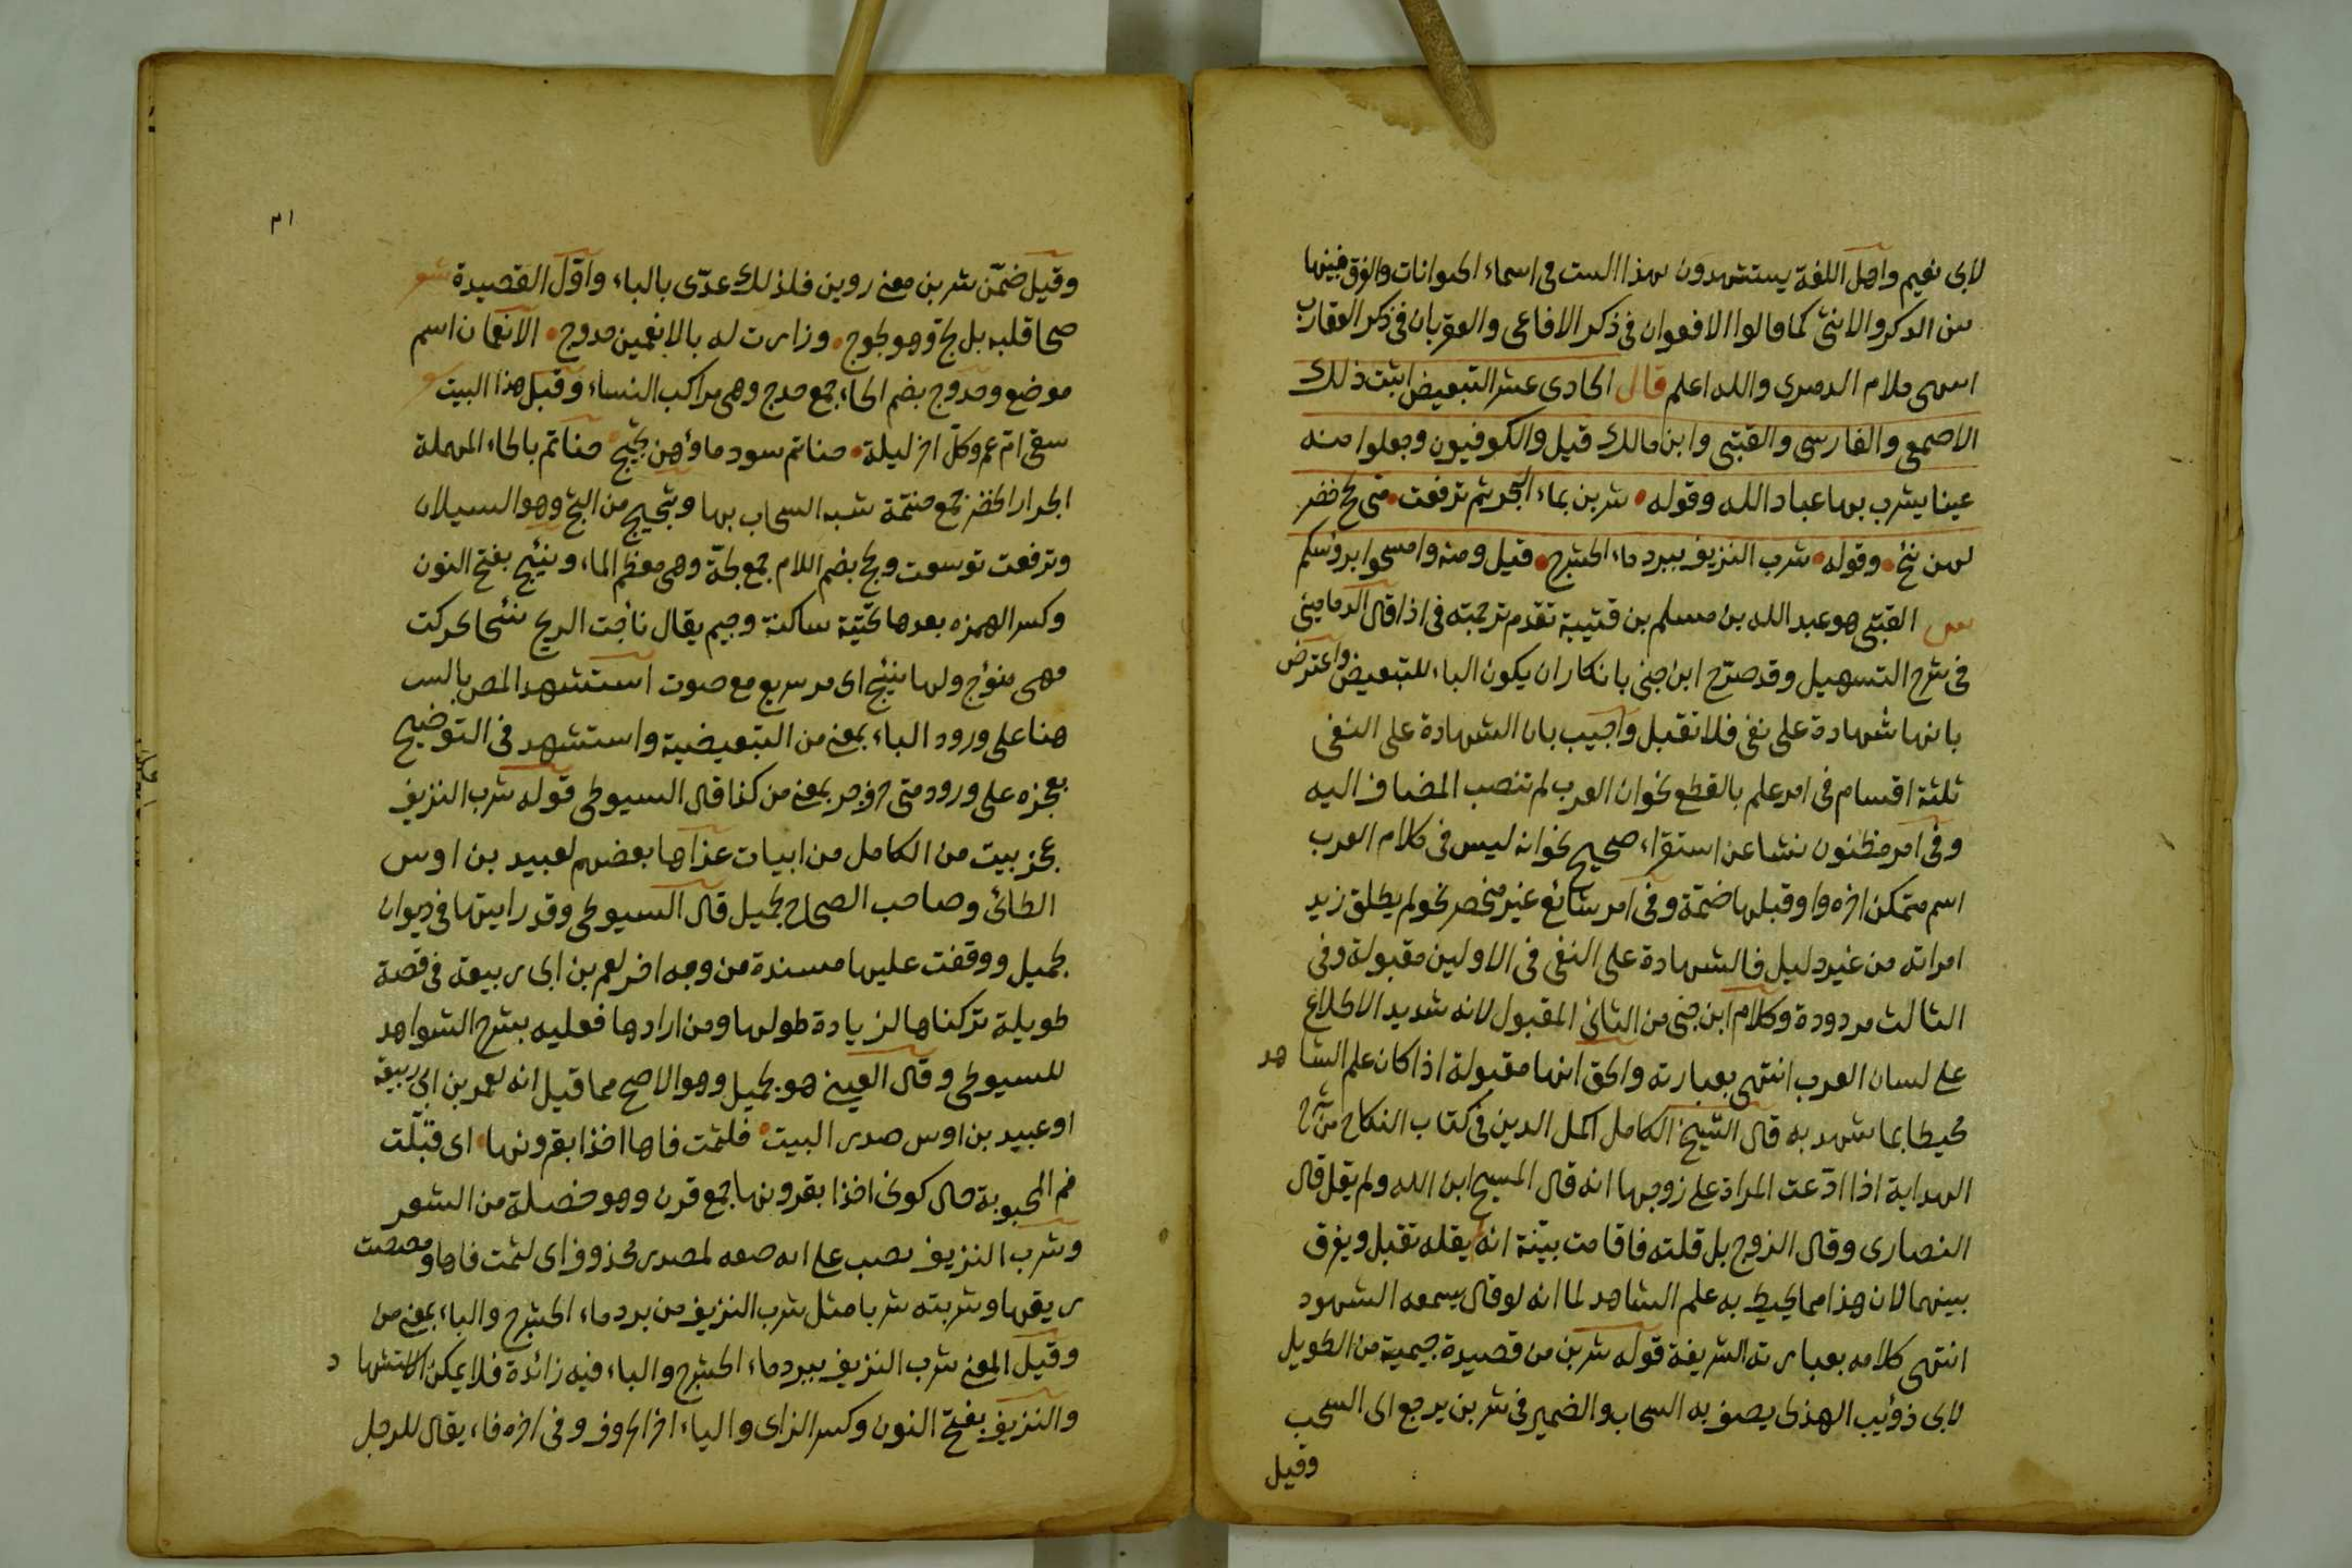 لابى نعيم واهل اللغة يستشهدون بهذا البيت فى اسماء الحيوانات والفرق فيها
بين الذكر والانثى كما قالوا الافعوان فى ذكر الافاعى والعقربان فى ذكر العقارب
انتهى كلام الدميرى والله اعلم قال الحادى عشر التبعيض اثبت ذلك
الاصمعى والفارسى والقتبى وابن مالك قيل والكوفيون وجعلوا منه
عينا يشرب بها عباد الله وقوله شربن بماء البحر ثم ترفعت متى لجج خضر
لهن نئيج وقوله شرب النزيف ببرد ماء الحشرج قيل ومنه وامسحوا برؤسكم
س القتبى هو عبد الله بن مسلم بن قتيبة تقدم ترجمته فى اذا قال الدمامينى
فى شرح التسهيل وقد صرّح ابن جنى بانكار ان يكون الباء للتبعيض واعترض
بانها شهادة على نفى فلا تقبل واجيب بان الشهادة على النفى
ثلثة اقسام فى امر علم بالقطع نحو ان العرب لم تنصب المضاف اليه
وفى امر مظنون نشا عن استقراء صحيح نحو انه ليس فى كلام العرب
اسم متمكن اخره واو قبلها ضمّة وفى امر شائع غير منحصر نحو لم يطلق زيد
امراته من غير دليل فالشهادة على النفى فى الاولين مقبولة وفى
الثالث مردودة وكلام ابن جنى من الثانى المقبول لانه شديد الاطلاع
على لسان العرب انتهى بعبارته والحق انها مقبولة اذا كان علم الشاهد
محيطا بما شهد به قال الشيخ الكامل اكمل الدين فى كتاب النكاح من شرح
الهداية اذا ادّعت المراة على زوجها انه قال المسيح ابن الله ولم يقل قال
النصارى وقال الزوج بل قلته فاقامت بيّنة انه لم يقله تقبل ويفرق
بينهما لان هذا مما يحيط به علم الشاهد لما انه لو قال يسمعه الشهود
انتهى كلامه بعبارته الشريفة قوله شربن من قصيدة جيمية من الطويل
لابى ذؤيب الهذلى يصف به السحاب والضمير فى شربن يرجع الى السحب
وقيل
٣١
وقيل ضمّن شربن معنى روين فلذلك عدّى بالباء واوّل القصيدة شعر
صحا قلبه بل لجّ وهو لجوج وزارت له بالانعمين حدوج الانعمان اسم
موضع وحدوج بضم الحاء جمع حدج وهى مراكب النساء وقبل هذا البيت
سقى ام عمرو كلّ اخر ليلة حناتم سود ماؤهن ثجيج حناتم بالحاء المهملة
الجرار الخضر جمع حنتمة شبه السحاب بها وثجيج من الثج وهو السيلان
وترفعت توسعت ولجج بضم اللام جمع لجّة وهى معظم الماء ونئيج بفتح النون
وكسر الهمزه بعدها تحتيّة ساكنة وجيم يقال نأجت الريح نئيجا تحركت
فهى منؤج ولها نئيج اى مر سريع مع صوت استشهد المص بالبيت
هنا على ورود الباء بمعنى من التبعيضية واستشهد فى التوضيح
بعجزه على ورود متى حرف جر بمعنى من كذا قال السيوطى قوله شرب النزيف
عجز بيت من الكامل من ابيات عزاها بعضهم لعبيد بن اوس
الطائى وصاحب الصحاح لجميل قال السيوطى وقد رايتها فى ديوان
جميل ووقفت عليها مسندة من وجه اخر لعمر بن ابى ربيعة فى قصة
طويلة تركناها لزيادة طولها ومن ارادها فعليه بشرح الشواهد
للسيوطى وقال العينى هو جميل وهو الاصح مما قيل انه لعمر بن ابى ربيعة
او عبيد بن اوس صدر البيت فلثمت فاها اخذا بقرونها اى قبّلت
فم المحبوبة حال كونى اخذا بقرونها جمع قرن وهو خصلة من الشعر
وشرب النزيف نصب على انه صفه لمصدر محذوف اى لثمت فاها ومصصت
ريقها وشربته شربا مثل شرب النزيف من برد ماء الحشرج والباء بمعنى من
وقيل المعنى شرب النزيف ببرد ماء الحشرج والباء فيه زائدة فلا يمكن الاستشهاد
والنزيف بفتح النون وكسر الزاى والياء اخر الحروف وفى اخره فاء يقال للرجل